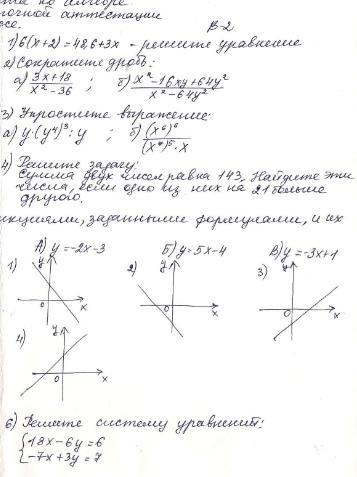 по алгебре
точной аттестации
В-2
1) 6(x+2)=48,6+3x - решите уравнение
2) Сократите дробь:
а) (3x+18)/(x²-36) ; б) (x²-16xy+64y²)/(x²-64y²)
3) Упростите выражение:
а) y·(y⁴)³:y ; б) (x⁶)⁶/((x⁴)⁵·x)
4) Решите задачу:
Сумма двух чисел равна 143. Найдите эти
числа, если одно из них на 21 больше
другого.
нкциями, заданными формулами, и их
А) y=-2x-3 Б) y=5x-4 В) y=-3x+1
1) y 0 x 2) y 0 x 3) y 0 x
4) y 0 x
6) Решите систему уравнений:
{18x-6y=6
{-7x+3y=7